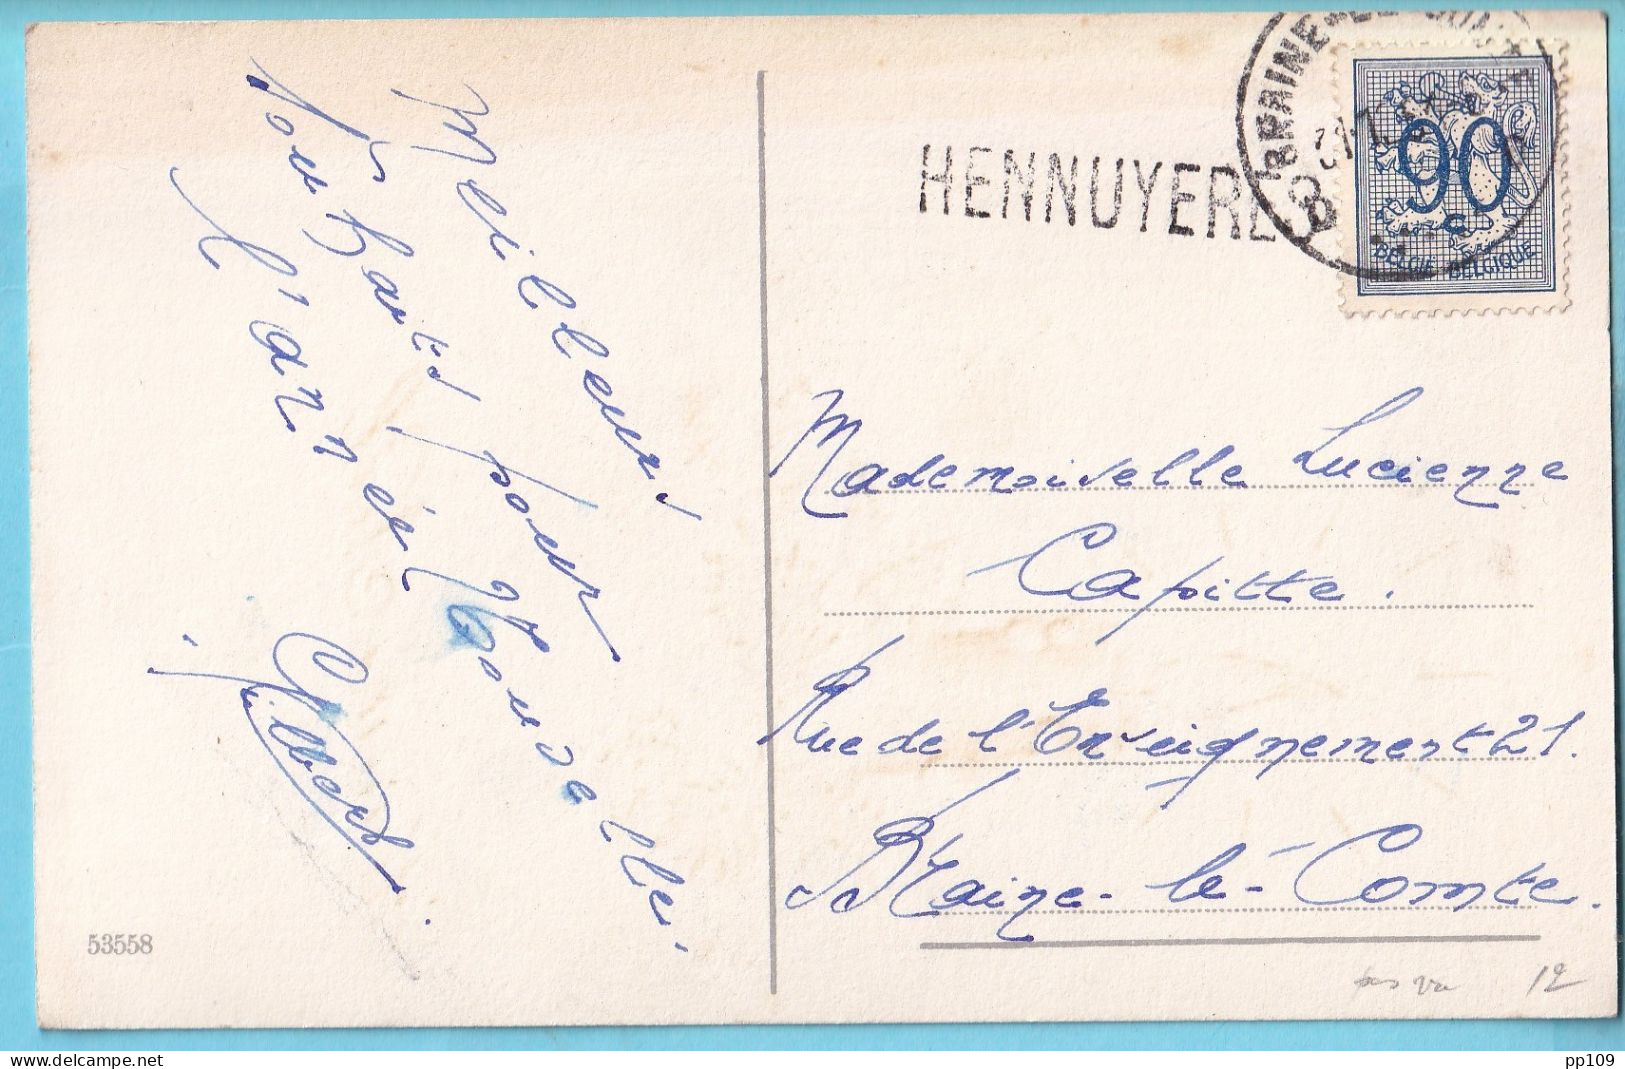 Meilleurs
Souhaits pour
l'année
Nouvelle.
Gilbert.
53558
HENNUYERE
BRAINE-LE-COMTE
90
C
BELGIE BELGIQUE
Mademoiselle Lucienne
Capitte.
Rue de l'Enseignement 21.
Braine-le-Comte.
12
pp109
delcampe.net